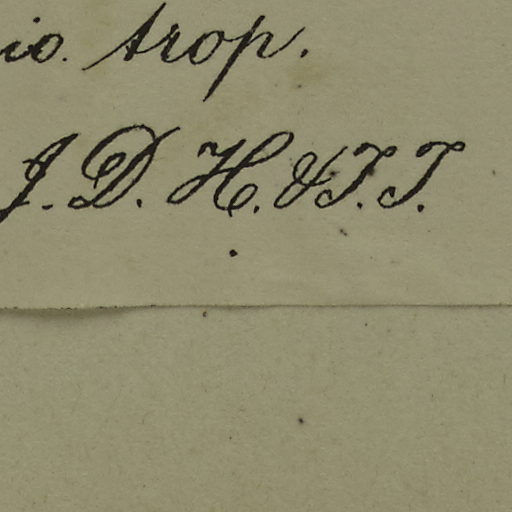 io. trop.
J. D. H. & T. T.